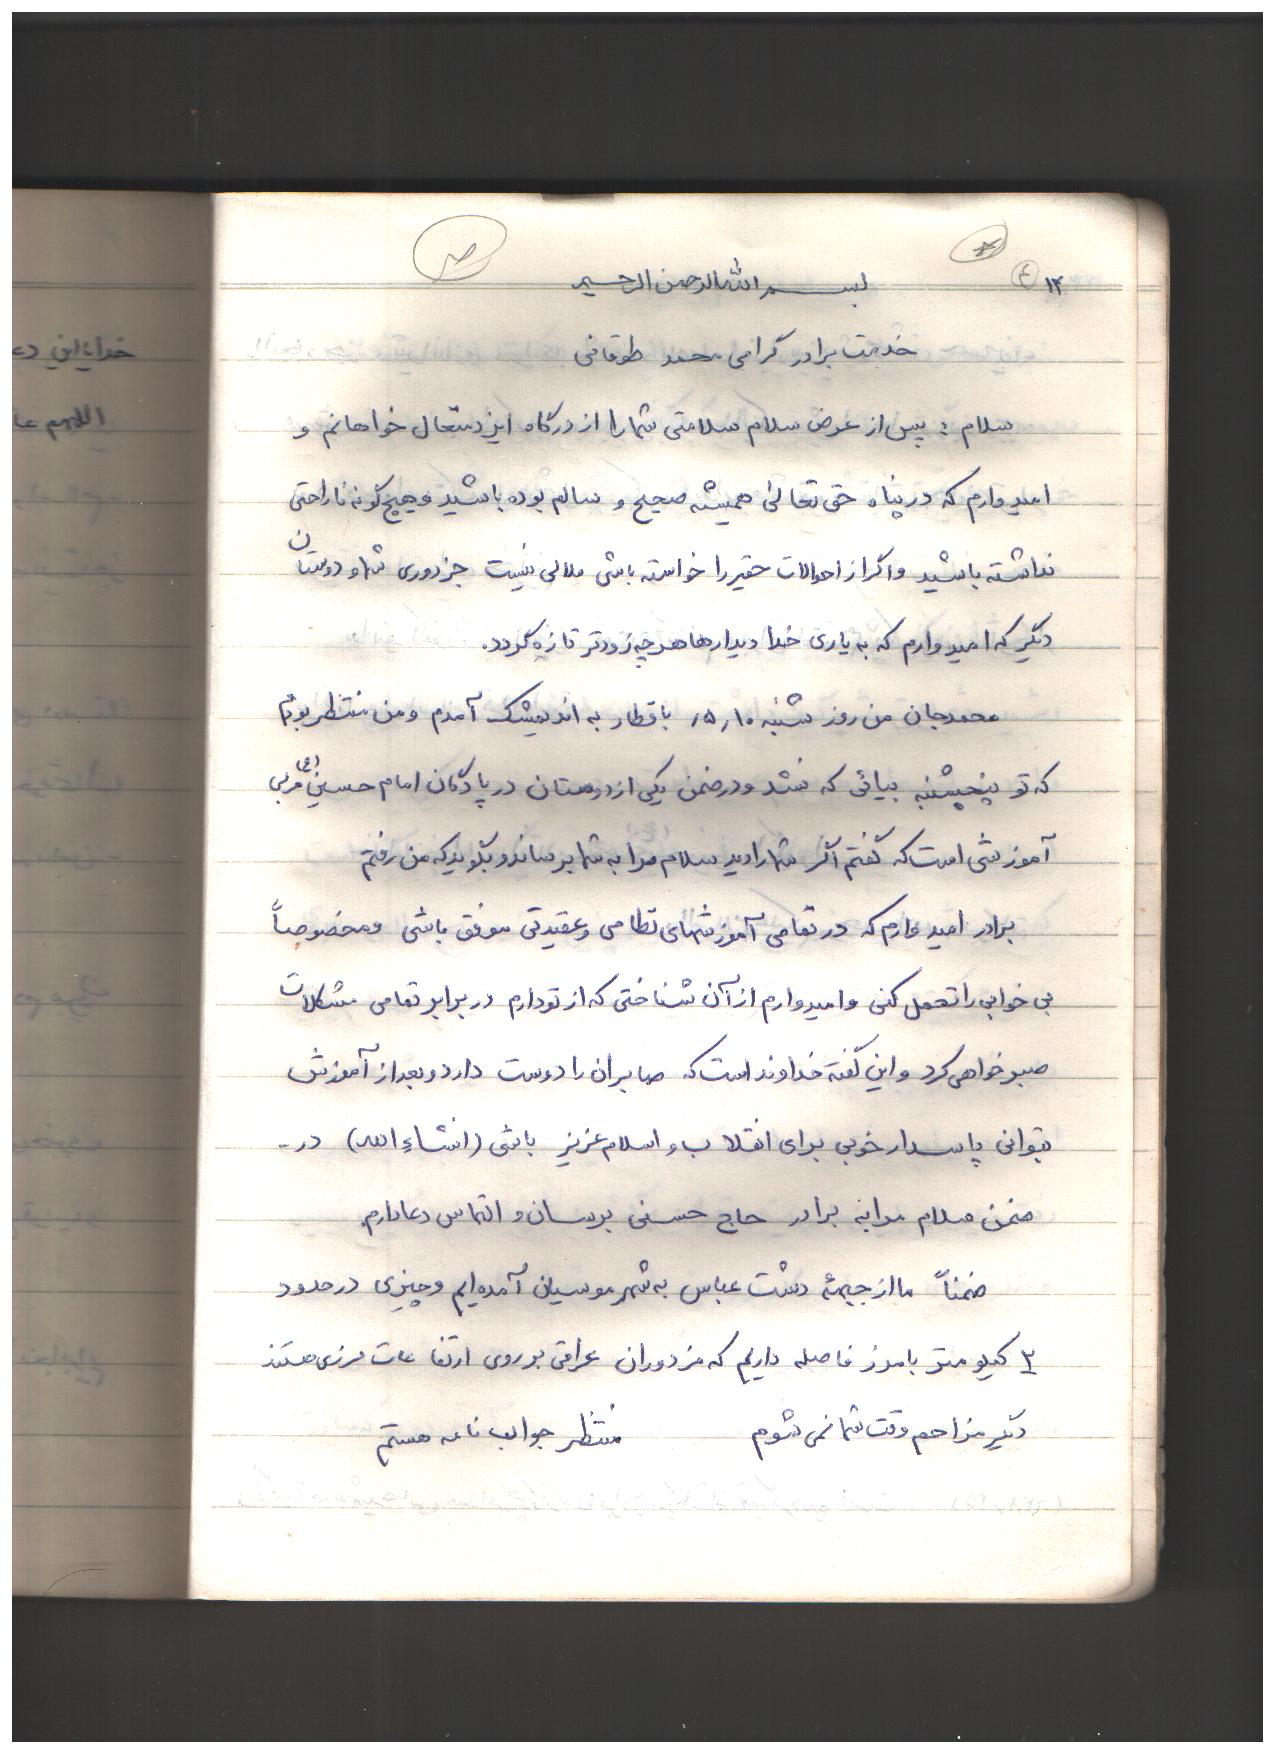 ۱۳ ۴
بسم الله الرحمن الرحیم
خدمت برادر گرامی محمد طوقانی
سلام : پس از عرض سلام سلامتی شما را از درگاه ایزد متعال خواهانم و
امیدوارم که در پناه حق تعالی همیشه صحیح و سالم بوده باشید و هیچ گونه ناراحتی
نداشته باشید و اگر از احوالات حقیر را خواسته باشی ملالی نیست جز دوری شما و دوستان
دیگر که امیدوارم که به یاری خدا دیدارها هر چه زودتر تازه گردد.
محمدجان من روز شنبه ۵٫۱۰٫ با قطار به اندیمشک آمدم و من منتظر بودم
که تو پنجشنبه بیائی که نشد و در ضمن یکی از دوستان در پادگان امام حسین (ع) مربی
آموزشی است که گفتم اگر شما را دید سلام مرا به شما برساند و بگوید که من رفتم
برادر امیدوارم که در تمامی آموزشهای نظامی و عقیدتی موفق باشی و مخصوصاً
بی خوابی را تحمل کنی و امیدوارم از آن شناختی که از تو دارم در برابر تمامی مشکلات
صبر خواهی کرد و این گفته خداوند است که صابران را دوست دارد و بعد از آموزش
بتوانی پاسدار خوبی برای انقلاب و اسلام عزیز باشی (انشاء الله) در-
ضمن سلام مرا به برادر حاج حسنی برسان و التماس دعا دارم.
ضمناً ما از جبهۀ دشت عباس به شهر موسیان آمده ایم و چیزی در حدود
۳ کیلومتر با مرز فاصله داریم که مزدوران عراقی بر روی ارتفاعات مرزی هستند
دیگر مزاحم وقت شما نمی شوم منتظر جواب نامه هستم
خدایا این
اللهم